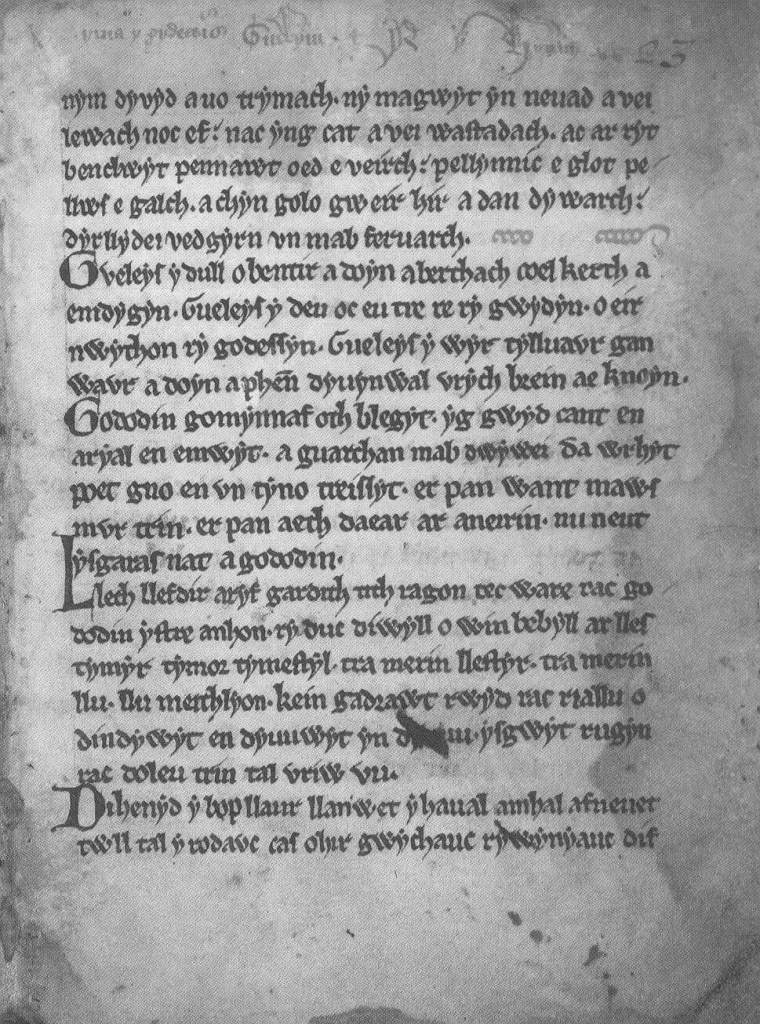 23
nym dyvyd a uo trymach. ny magwyt yn neuad a vei
lewach noc ef. nac yng cat a vei wastadach. ac ar ryt
benclwyt pennawt oed e veirch. pellynnic e glot pe
llws e galch. a chyn golo gweir hir a dan dywarch.
dyrllydei vedgyrn vn mab feruarch.
Gveleys y dull o bentir a doyn aberthach coel kerth a
emdygyn. Gueleys y deu oc eu tre re ry gwydyn. o eir
nwython ry godessyn. Gueleys y wyr tylluavr gan
wavr a doyn a phen dyuynwal vrych brein ae knoyn.
Gododin gomynnaf oth blegyt. yg gwyd cant en
aryal en emwyt. a guarchan mab dwywei da wrhyt
poet gno en vn tyno treissyt. er pan want maws
mvr trin. er pan aeth daear ar aneirin. nu neut
ysgaras nat a gododin.
Llech llefdir aryf gardith tith ragon tec ware rac go
dodin ystre anhon. ry duc diwyll o win bebyll ar lles
tymyr tymor tymestyl. tra merin llestyr. tra merin
llu. llu meithlyon. kein gadrawt rwyd rac riallu o
dindywyt en dyuuwyt yn ysgwyt rugyn
rac doleu trin tal vriw vu.
Dihenyd y bop llaur llanwet y haual amhal afneuet
twll tal y rodavc cas ohir gwychauc rywynyauc dif